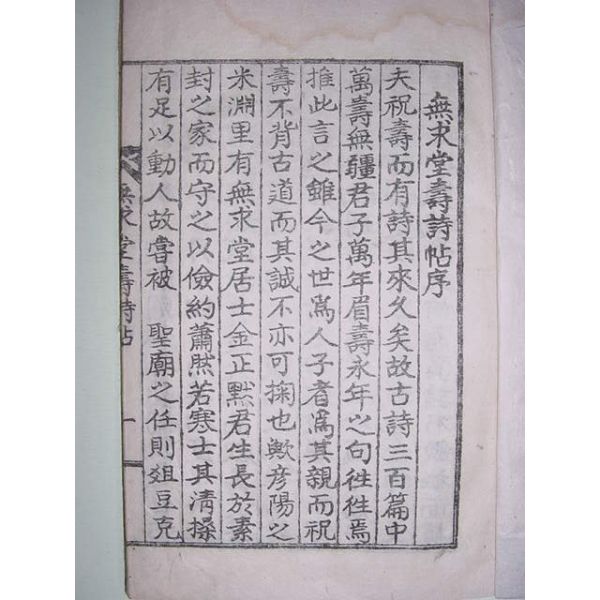 無求堂壽詩帖序
夫祝壽而有詩其來久矣故古詩三百篇中
萬壽無疆君子萬年眉壽永年之句徃徃焉
推此言之雖今之世爲人子者爲其親而祝
壽不背古道而其誠不亦可掬也歟彦陽之
米淵里有無求堂居士金正默君生長於素
封之家而守之以儉約蕭然若寒士其淸操
有足以動人故嘗被 聖廟之任則爼豆克
無求堂壽詩帖 一